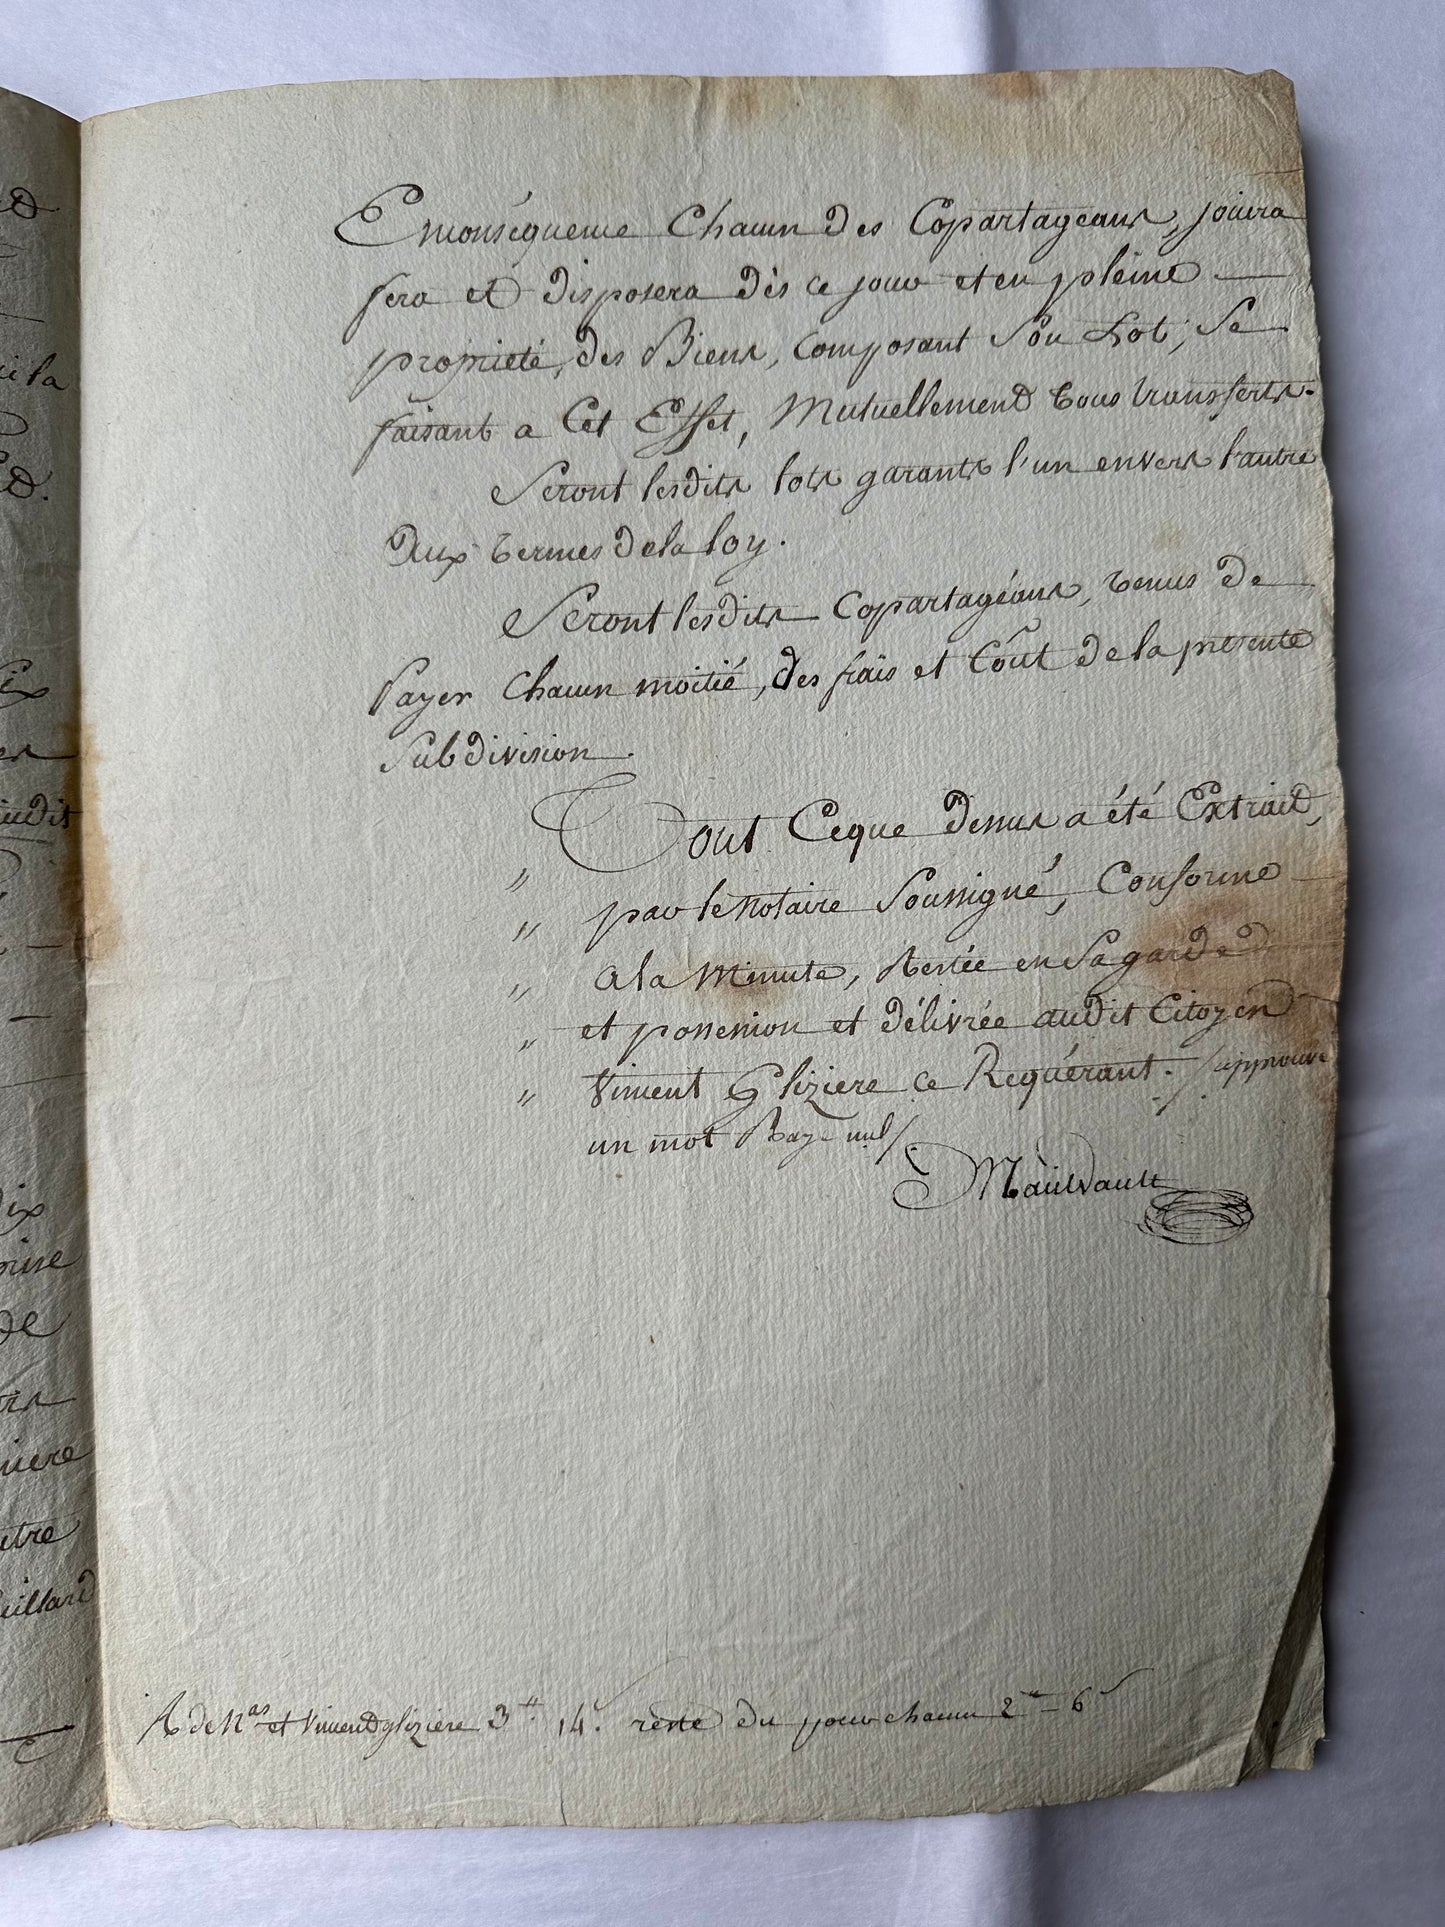 Enconséquence Chacun des Copartageans, jouira
fera et disposera dès ce jour et en pleine
propriété, des Biens, composant Son Lot, Se
faisant a Cet Effet, Mutuellement tous transferts.
Seront lesdits lots garants l'un envers l'autre
aux termes de la loy.
Seront lesdits Copartagéans, tenus de
Payer Chacun moitié, des frais et Coût de la presente
Subdivision.
" Tout Ceque dessus a été Extrait,
" par le Notaire Soussigné, Conforme
" a la Minute, Restée en Sa garde
" et possession et délivrée audit Citoyen
" Vincent Gliziere ce Requérant. / approuvé
un mot Rayé nul /.
Maulvault
R de Nas et Vincent gliziere 3tt 14s reste du pour chacun 2tt 6s
ui la
ix
audit
dix
de
niere
utre
uillard